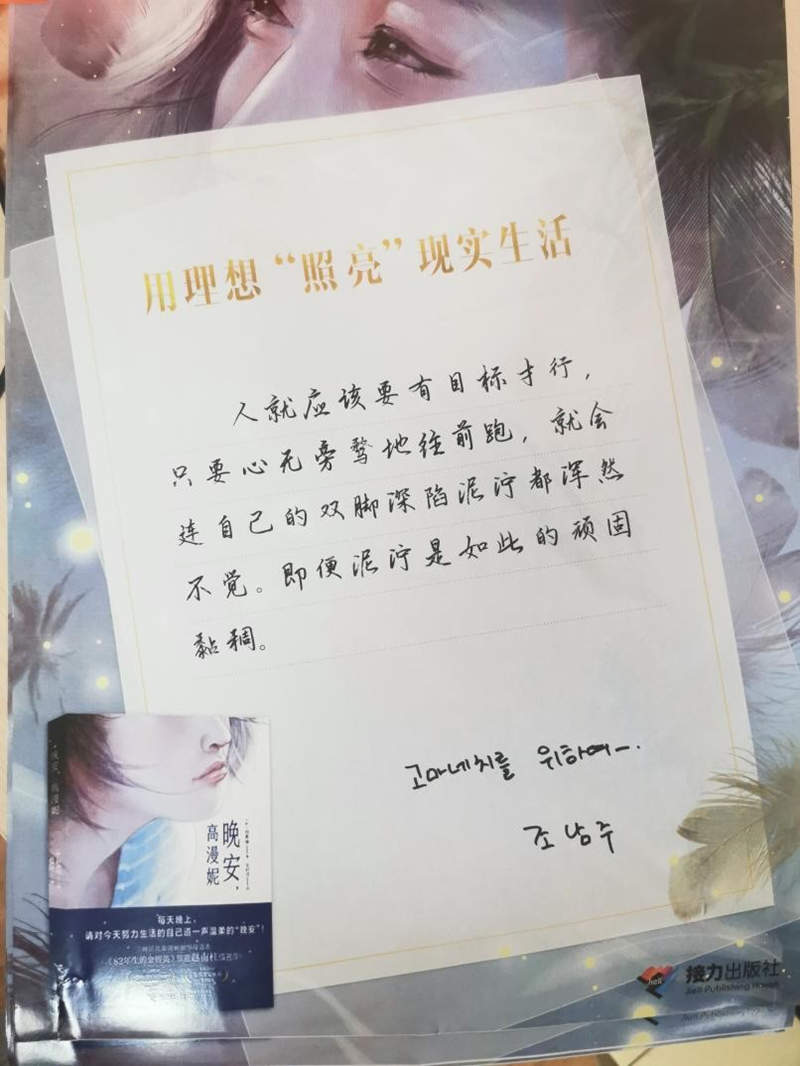 用理想“照亮”现实生活
人就应该要有目标才行，
只要心无旁骛地往前跑，就会
连自己的双脚深陷泥泞都浑然
不觉。即便泥泞是如此的顽固
黏稠。
고마네치를 위하여ㅡ.
조남주
晚安，
高漫妮
晚安，高漫妮
每天晚上，
请对今天努力生活的自己道一声温柔的“晚安”！
《82年生的金智英》原著赵南柱
接力出版社
Jieli Publishing House